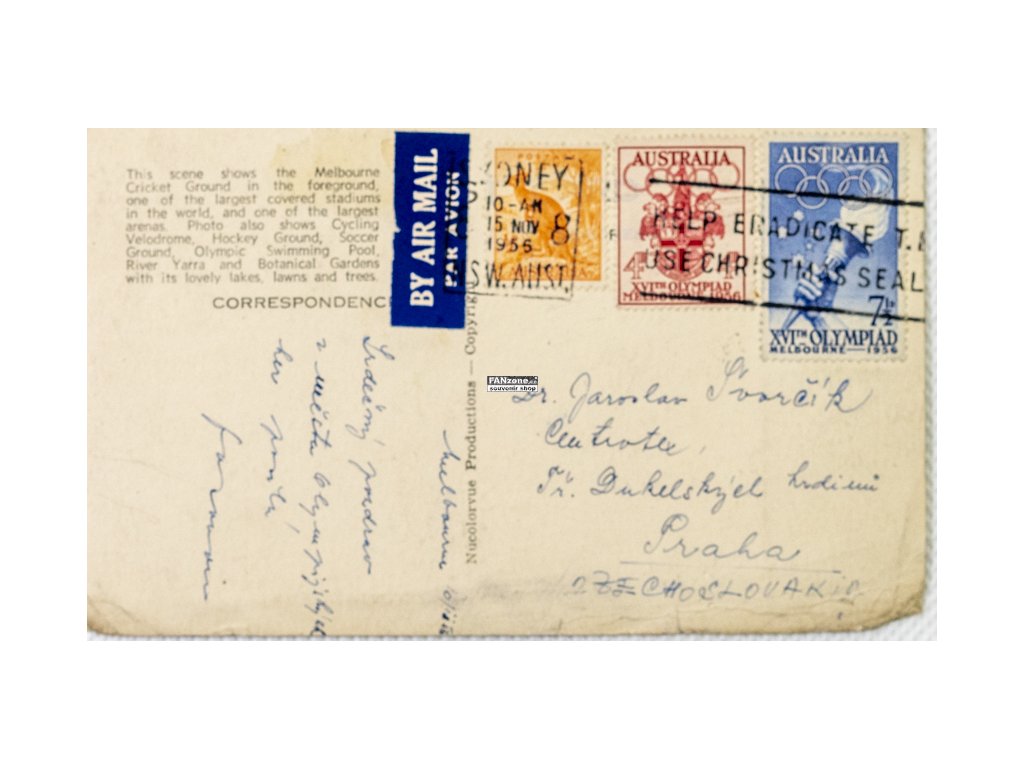 This scene shows the Melbourne
Cricket Ground in the foreground,
one of the largest covered stadiums
in the world, and one of the largest
arenas. Photo also shows Cycling
Velodrome, Hockey Ground, Soccer
Ground, Olympic Swimming Pool,
River Yarra and Botanical Gardens
with its lovely lakes, lawns and trees.
CORRESPONDENC
BY AIR MAIL
PAR AVION
SYDNEY
10-AM
15 NOV 8
1956
N.S.W. AUST.
AUSTRALIA
4D
XVITH OLYMPIAD
MELBOURNE 1956
AUSTRALIA
7½
XVITH OLYMPIAD
MELBOURNE 1956
HELP ERADICATE T.B
USE CHRISTMAS SEAL
Nucolorvue Productions — Copyright
FANzone.cz
souvenir shop
Melbourne
Srdečný pozdrav
z města Olympijských
her posílá
Dr. Jaroslav Dvorčík
Centrotex,
Tř. Dukelských hrdinů
Praha
CZECHOSLOVAKIA